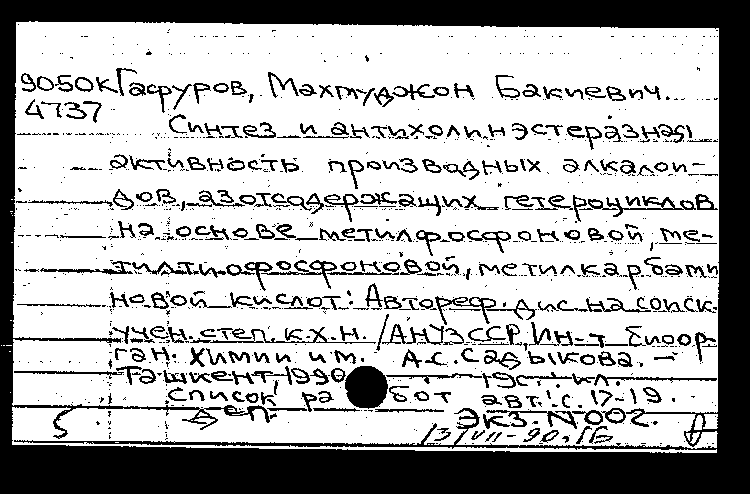 9050к Гафуров, Махмуджон Бакиевич.
4737
Синтез и антихолинэстеразная
активность производных алкалои-
дов, азотсодержащих гетероциклов
на основе метилфосфоновой, ме-
тилтиофосфоновой, метилкарбами
новой кислот: Автореф. дис на соиск.
учен. степ. к.х.н. / АН УзССР, Ин-т биоор-
ган. химии им. А.С. Садыкова. —
Ташкент, 1990 19с.: ил.
Список работ авт.: с. 17-19.
5 еп. Экз. N 002.
13/VII-90.